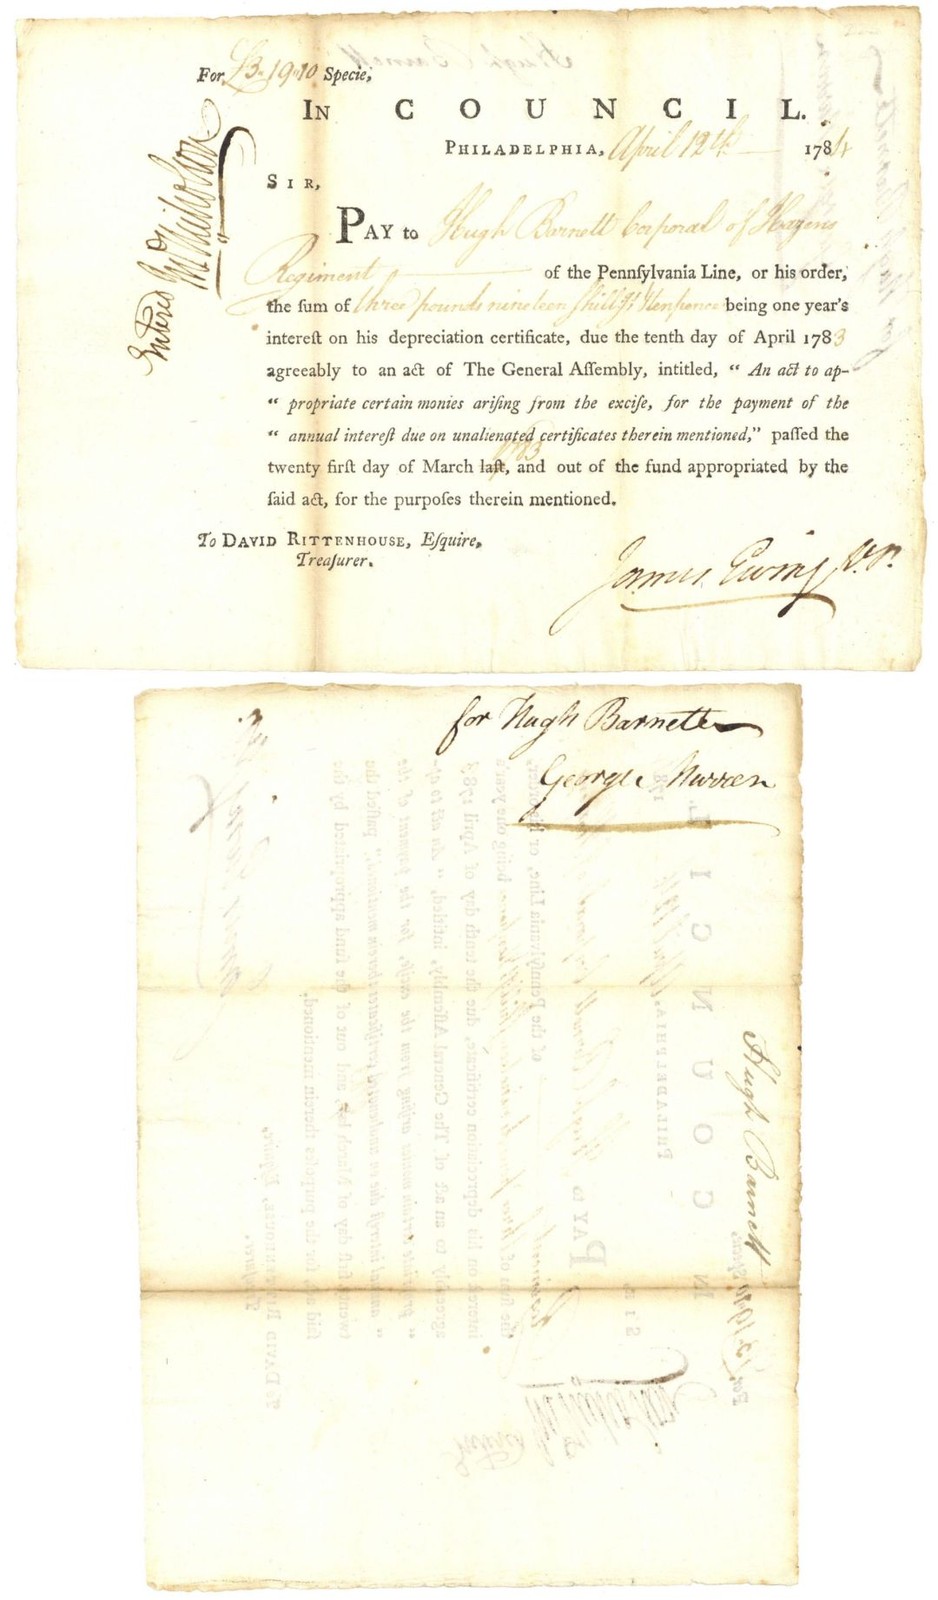 For £3"19"10 Specie,
IN COUNCIL.
PHILADELPHIA, April 12th 1784
SIR,
PAY to Hugh Barnett Corporal of Hazens
Regiment of the Pennſylvania Line, or his order,
the ſum of three pounds nineteen ſhillgs & tenpence being one year's
intereſt on his depreciation certificate, due the tenth day of April 1783
agreeably to an act of The General Aſſembly, intitled, " An act to ap-
" propriate certain monies ariſing from the exciſe, for the payment of the
" annual intereſt due on unalienated certificates therein mentioned," paſſed the
1783
twenty firſt day of March laſt, and out of the fund appropriated by the
ſaid act, for the purpoſes therein mentioned.
To DAVID RITTENHOUSE, Eſquire,
Treaſurer.
James Ewing V.P.
Entered Jno Nicholson
for Hugh Barnett
George
Hugh Barnett